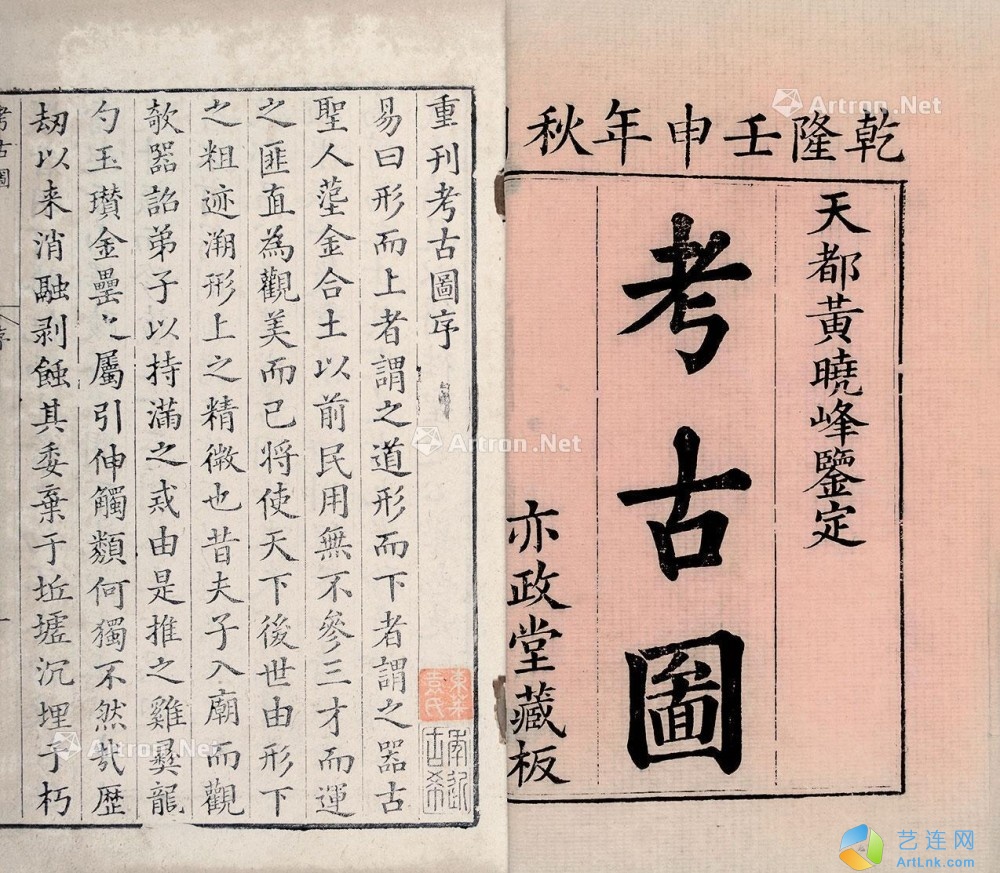 乾隆壬申年秋
天都黃曉峰鑒定
考古圖
亦政堂藏板
重刊考古圖序
易曰形而上者謂之道形而下者謂之器古
聖人金合土以前民用無不參三才而運
之匪直為觀美而已將使天下後世由形下
之粗迹溯形上之精微也昔夫子入廟而觀
欹器詔弟子以持滿之戒由是推之雞彝龍
勺玉瓚金罍之屬引伸觸類何獨不然哉歴
劫以来消融剥蝕其委棄于坵墟沉埋于朽
考古圖
序
一
Artron.Net
Artron.Net
Artron.Net
Artron.Net
Artron.Net
艺连网
ArtLnk.com